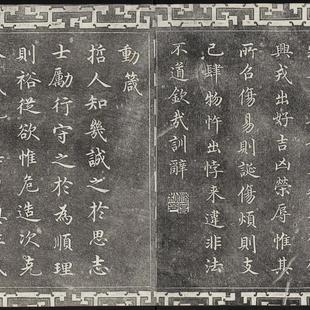 興戎出好吉凶榮辱惟其
所召傷易則誕傷煩則支
己肆物忤出悖来違非法
不道欽哉訓辭
動箴
哲人知幾誠之於思志
士勵行守之於為順理
則裕從欲惟危造次克